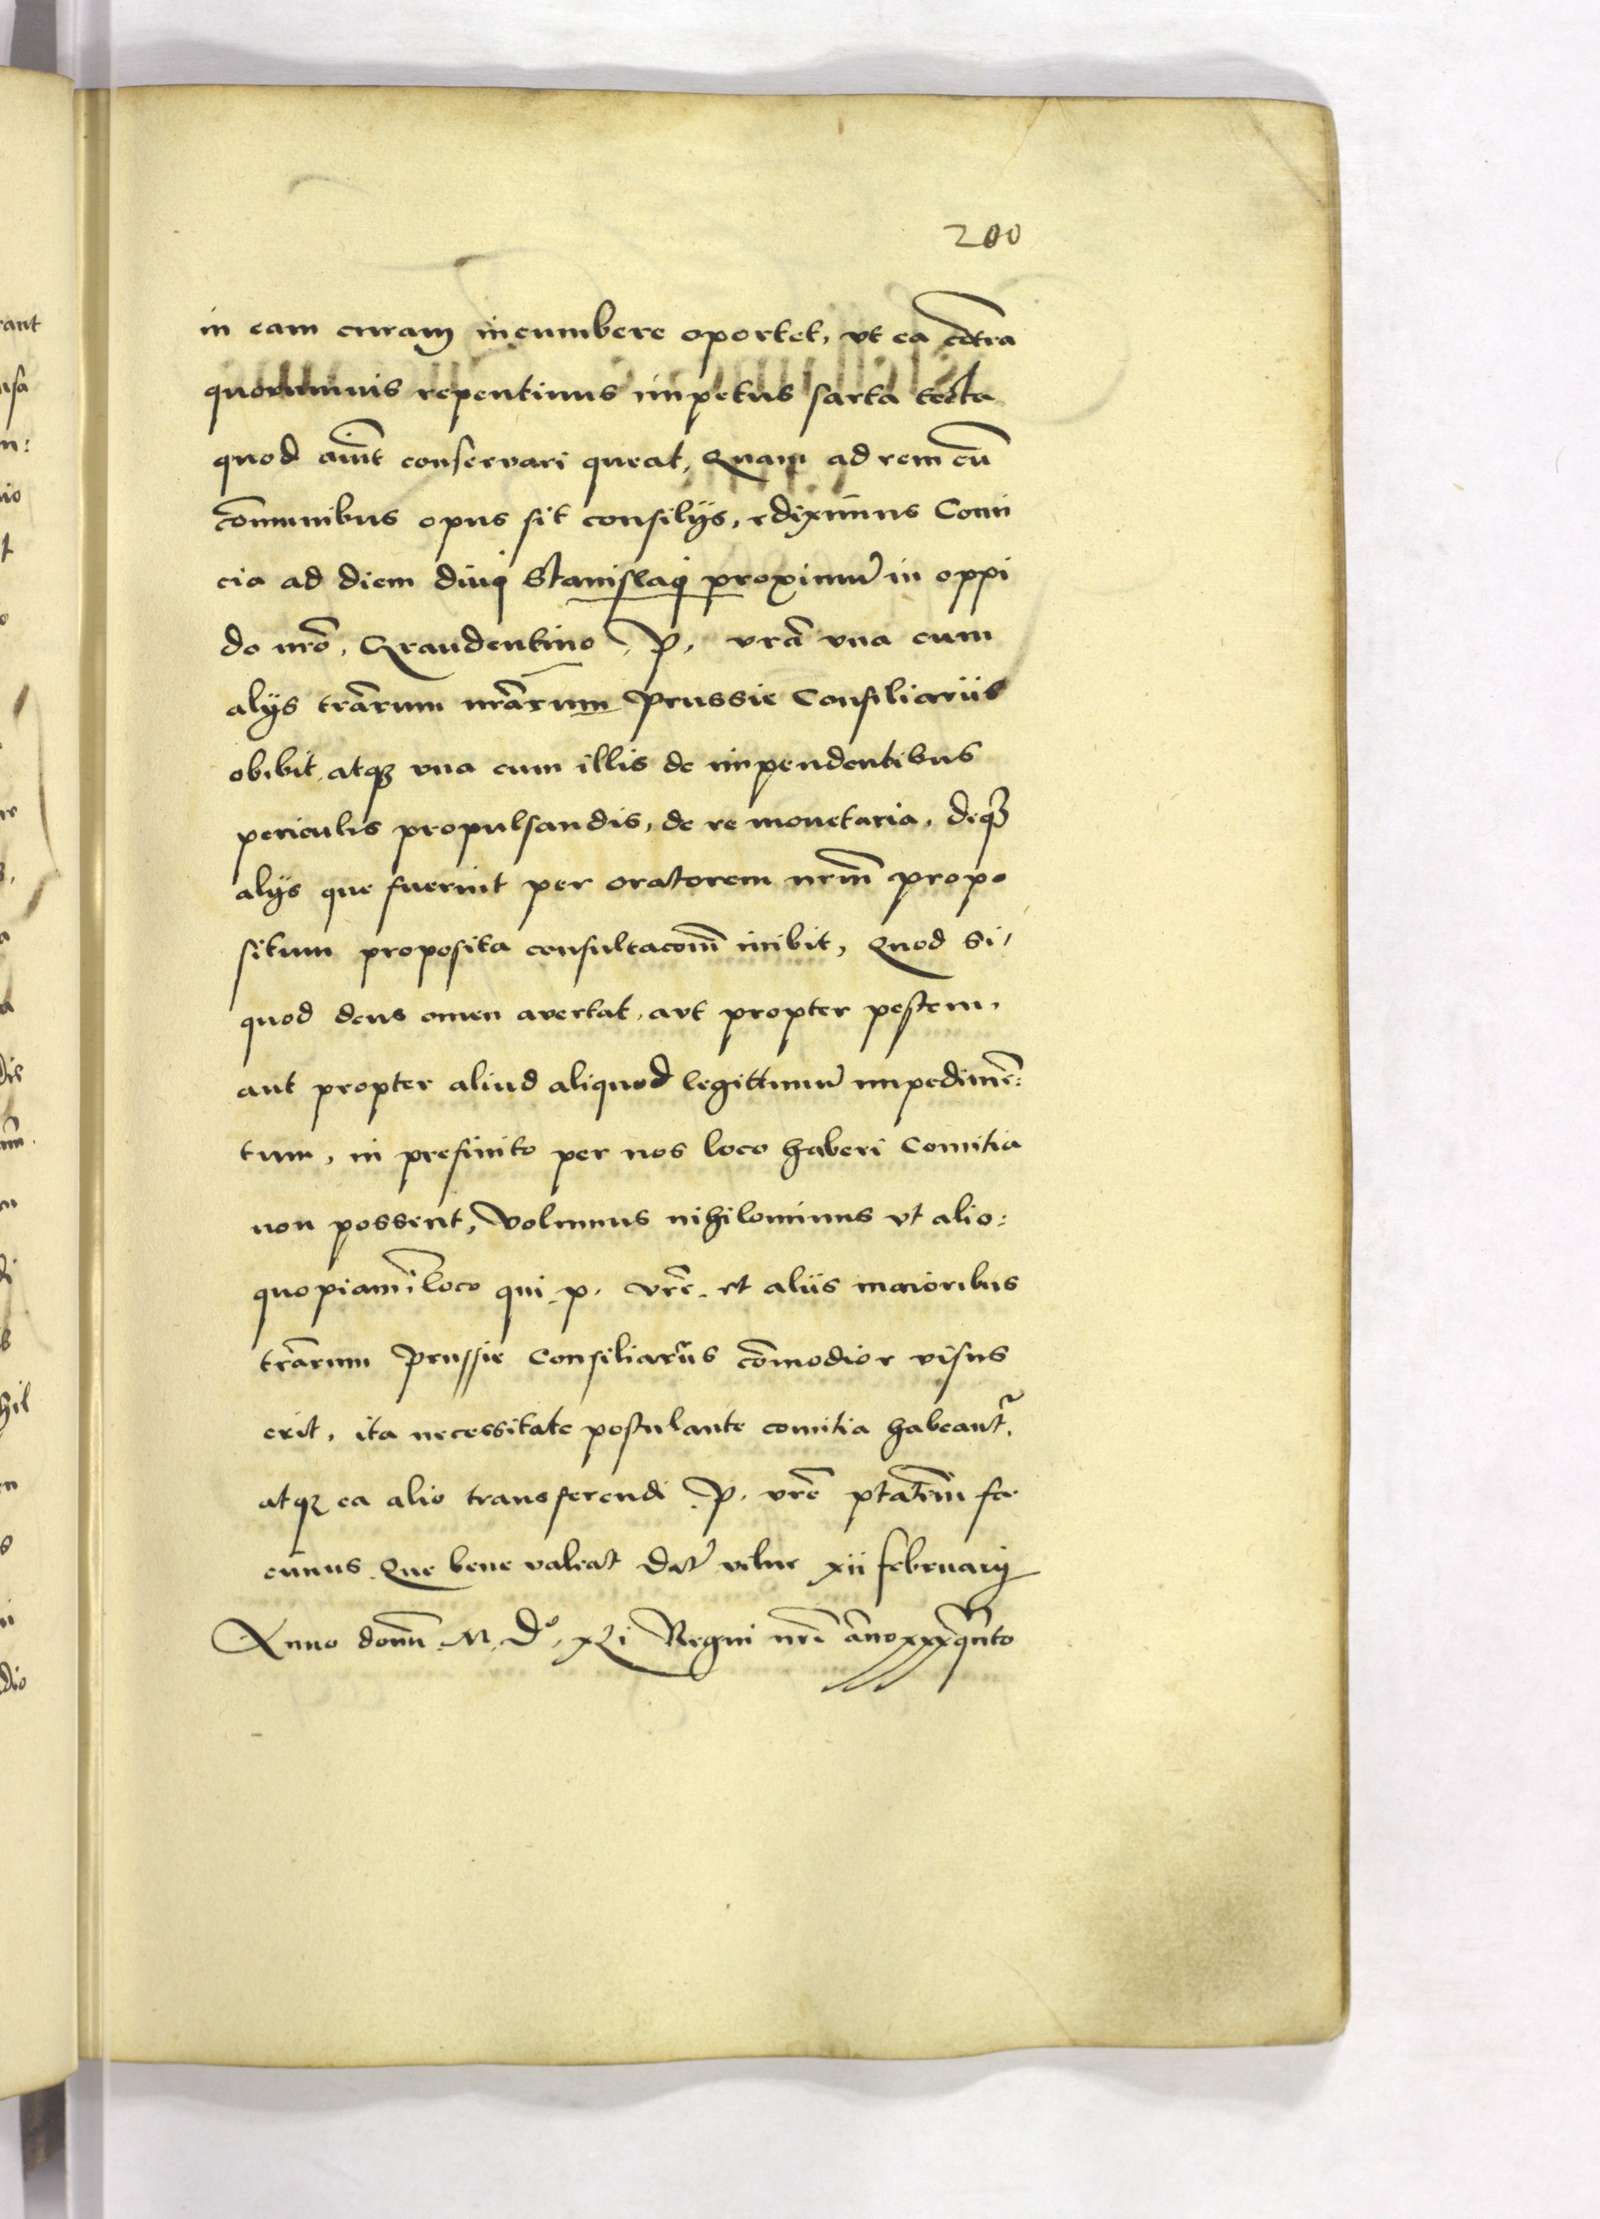 200
in eam curam incumbere oportet, vt ea cõtra
quorumuis repentinus impetus sarta tecta
quod aiũt conservari queat, Quam ad rem cũ
cõmunibus opus sit consilijs, ediximus Comi
cia ad diem diui Stanislai proximũ in oppi
do nr̃o, Graudentino, P. vr̃a vna cum
alijs tr̃arum nr̃arum Prussie Consiliariis
obibit, atqꝫ vna cum illis de impendentibus
periculis propulsandis, de re monetaria, deqꝫ
alijs que fuerint per oratorem nr̃m propo
situm proposita consultacõm inibit, Quod si,
quod deus omen avertat, aut propter pestem,
aut propter aliud aliquod legittimũ impedimẽ:
tum, in prefinito per nos loco haberi Comitia
non possent, Volumus nihilominus vt alio:
quopiam ĩ loco qui p. vr̃e. et aliis maioribus
tr̃arum Prussie Consiliariis cõmodior visus
erit, ita necessitate postulante comitia habeant̃.
atqꝫ ea alio transferendi P. vr̃e ptãtem fa
cimus. Que bene valeat Dat̃ vilne xii februarij
Anno domĩ M. Dº. xli Regni nr̃i ãno xxxqũto